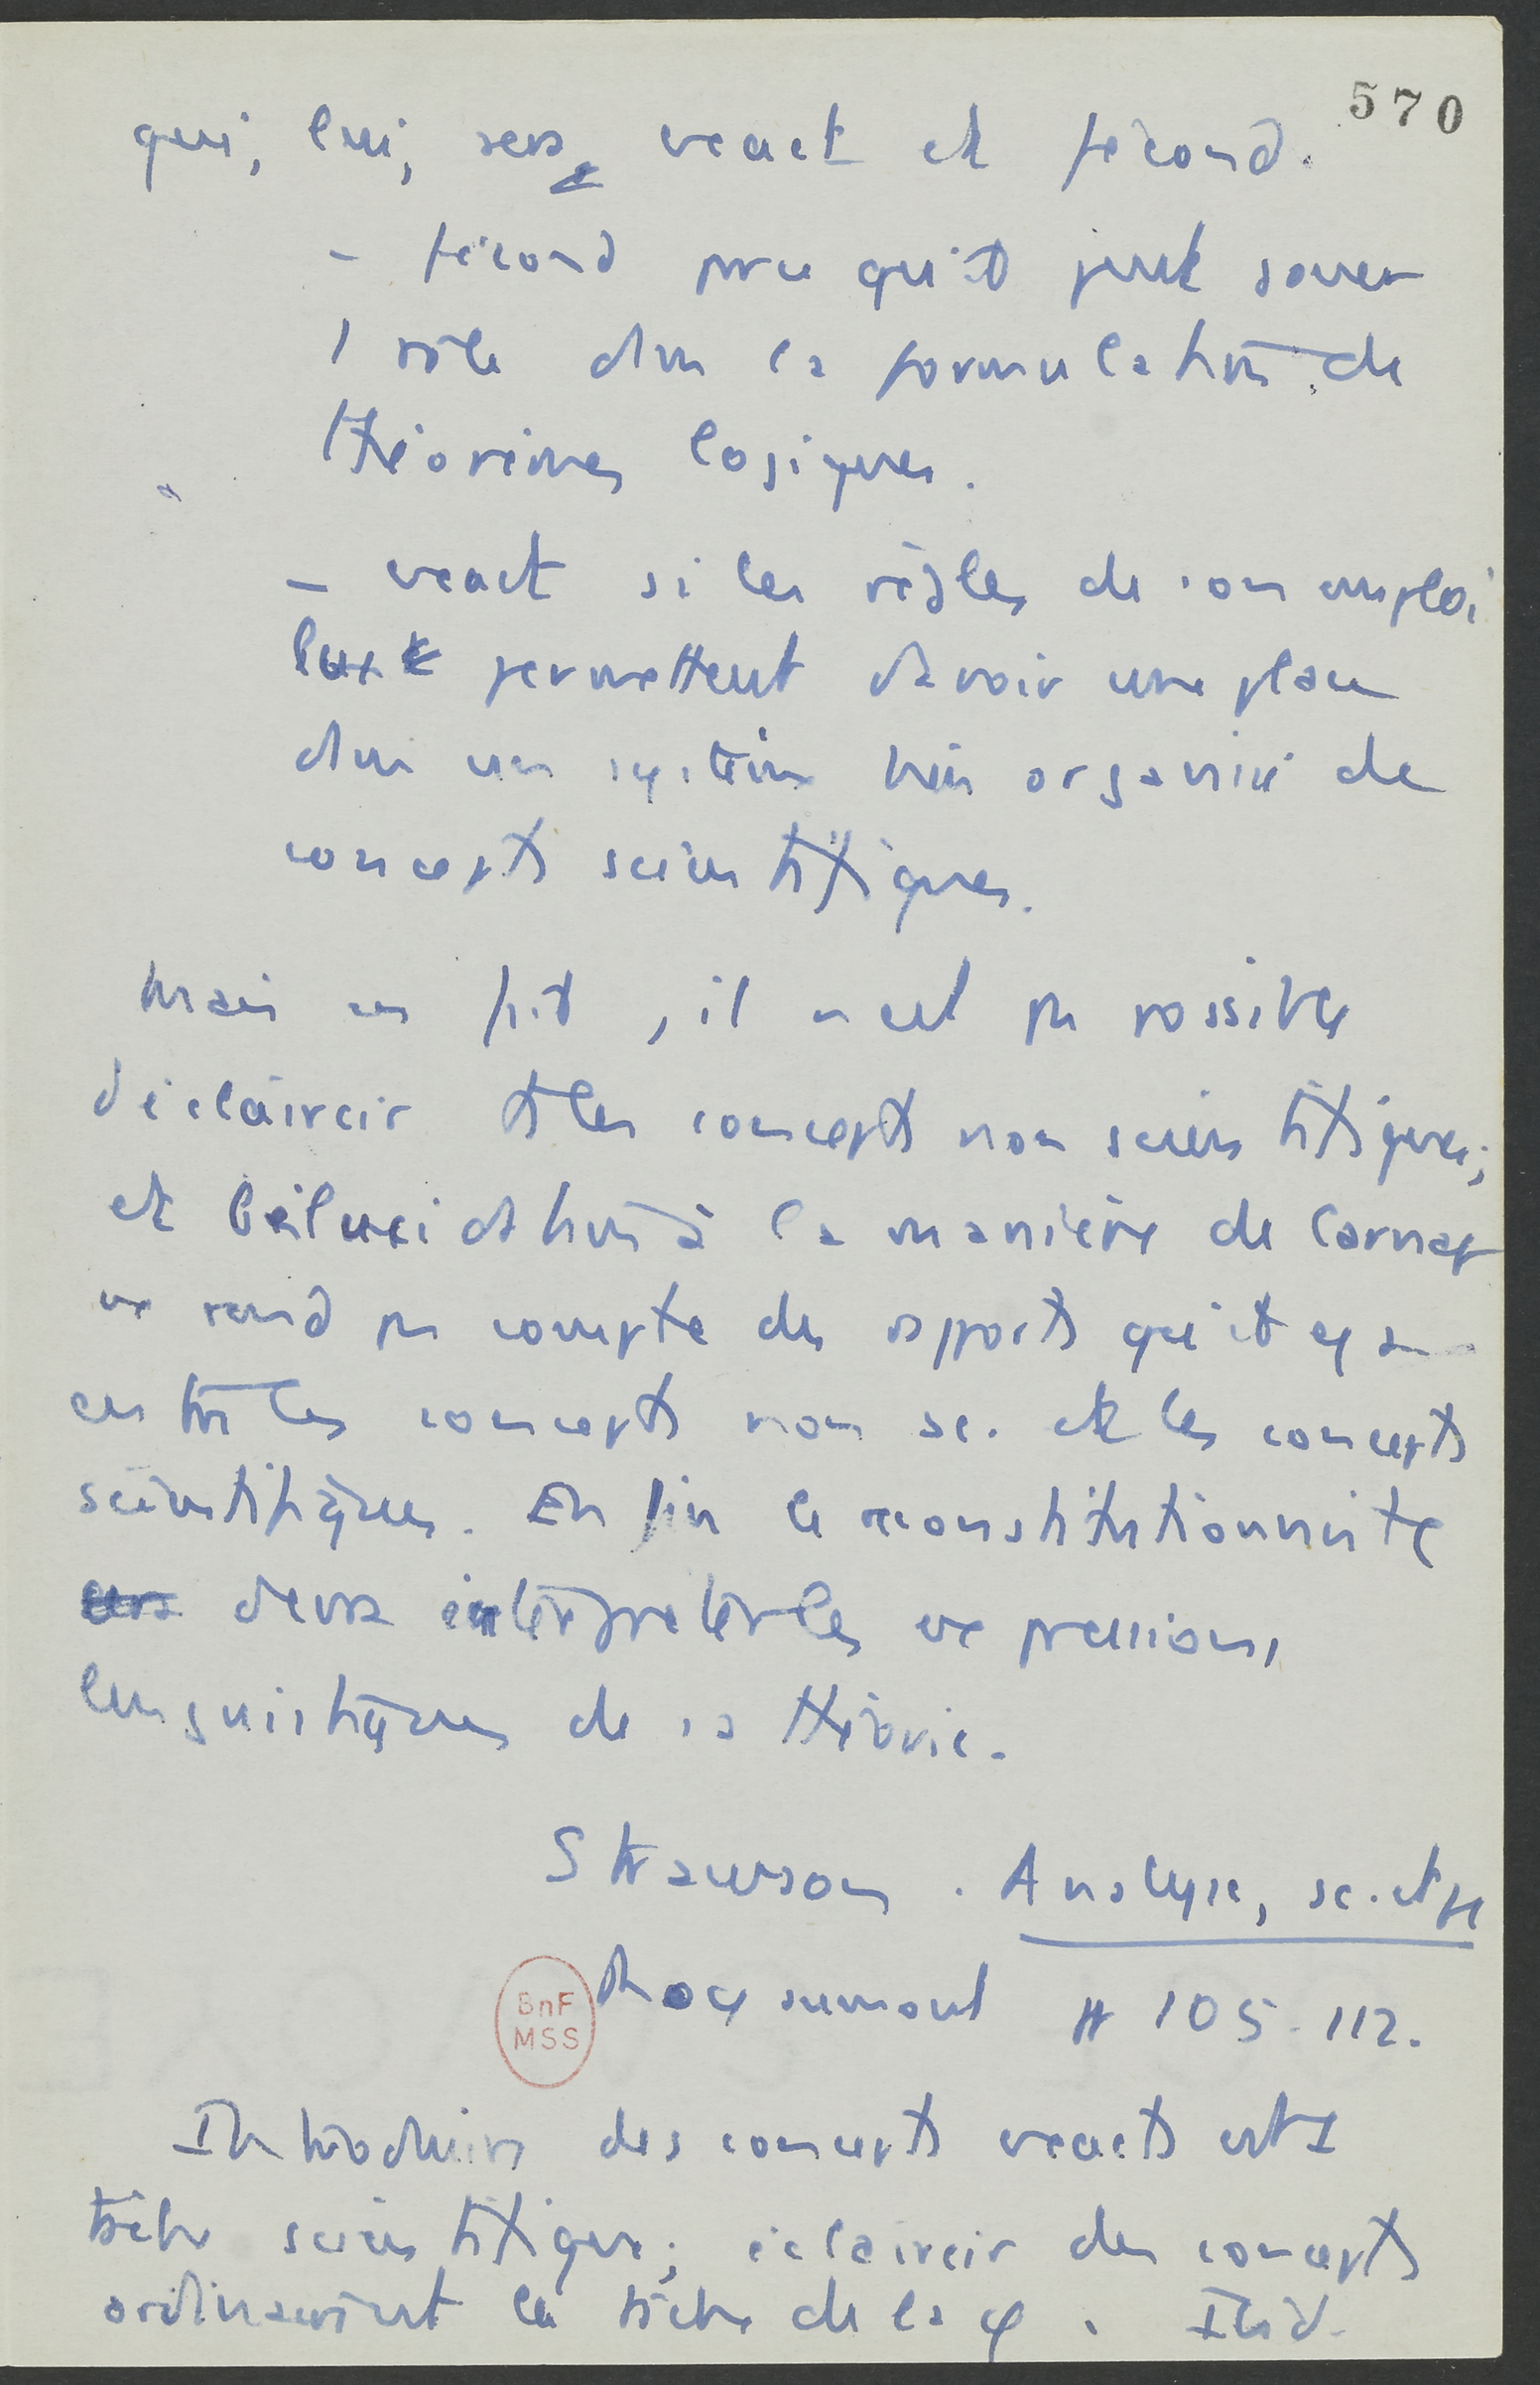 570
qui, lui, sera exact et fécond.
- fécond parce qu'il peut jouer
1 rôle dans la formulation de
théorèmes logiques.
- exact si les règles de son emploi
lui permettent d'avoir une place
dans un système bien organisé de
concepts scientifiques.
Mais en fait, il n'est pas possible
d'éclaircir ts les concepts non scientifiques;
et l'élucidation à la manière de Carnap
ne rend pas compte des rapports qu'il y a
entre les concepts non sc. et les concepts
scientifiques. Enfin le reconstitutionniste
devra interpréter les expressions
linguistiques de sa théorie.
Strawson. Analyse, sc. et
Royaumont 105-112.
Introduire des concepts exacts est 1
tâche scientifique; éclaircir des concepts
ordinaires est la tâche de la φ. Ibid.
BnF
MSS